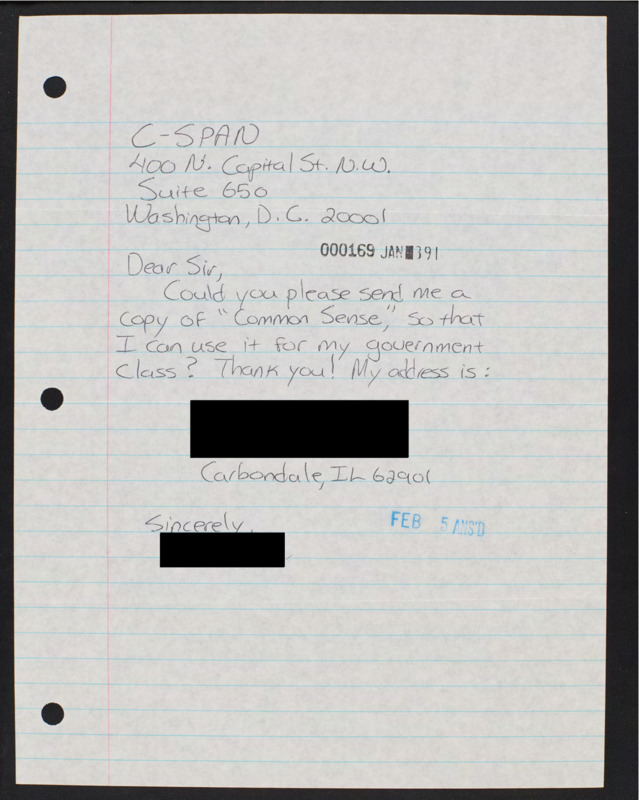 C-SPAN
400 N. Capital St. N.W.
Suite 650
Washington, D.C. 20001
000169 JAN 391
Dear Sir,
Could you please send me a
copy of "Common Sense," so that
I can use it for my government
class? Thank you! My address is:
Carbondale, IL 62901
Sincerely,
FEB 5 ANS'D